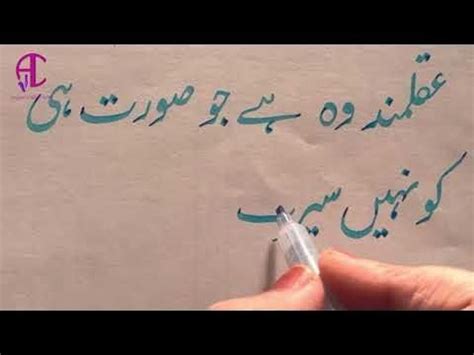 عقلمند وہ ہے جو صورت ہی
کو نہیں سیر